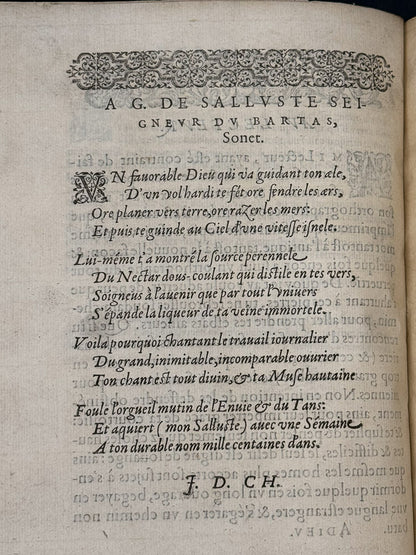 A G. DE SALLVSTE SEI
GNEVR DV BARTAS,
Sonet.
VN fauorable Dieu qui va guidant ton æle,
D'vn vol hardi te fét ore fendre les ærs,
Ore planer vers terre, ore razer les mers:
Et puis te guinde au Ciel d'vne vitesse isnele.
Lui-méme t'a montré la source perennele
Du Nectar dous-coulant qui distile en tes vers,
Soigneus à l'auenir que par tout l'vniuers
S'épande la liqueur de ta veine immortele.
Voila pourquoi chantant le trauail iournalier
Du grand, inimitable, incomparable ouurier
Ton chant est tout diuin, & ta Muse hautaine
Foule l'orgueil mutin de l'Enuie & du Tans:
Et aquiert (mon Salluste) auec vne Semaine
A ton durable nom mille centaines d'ans.
J. D. CH.